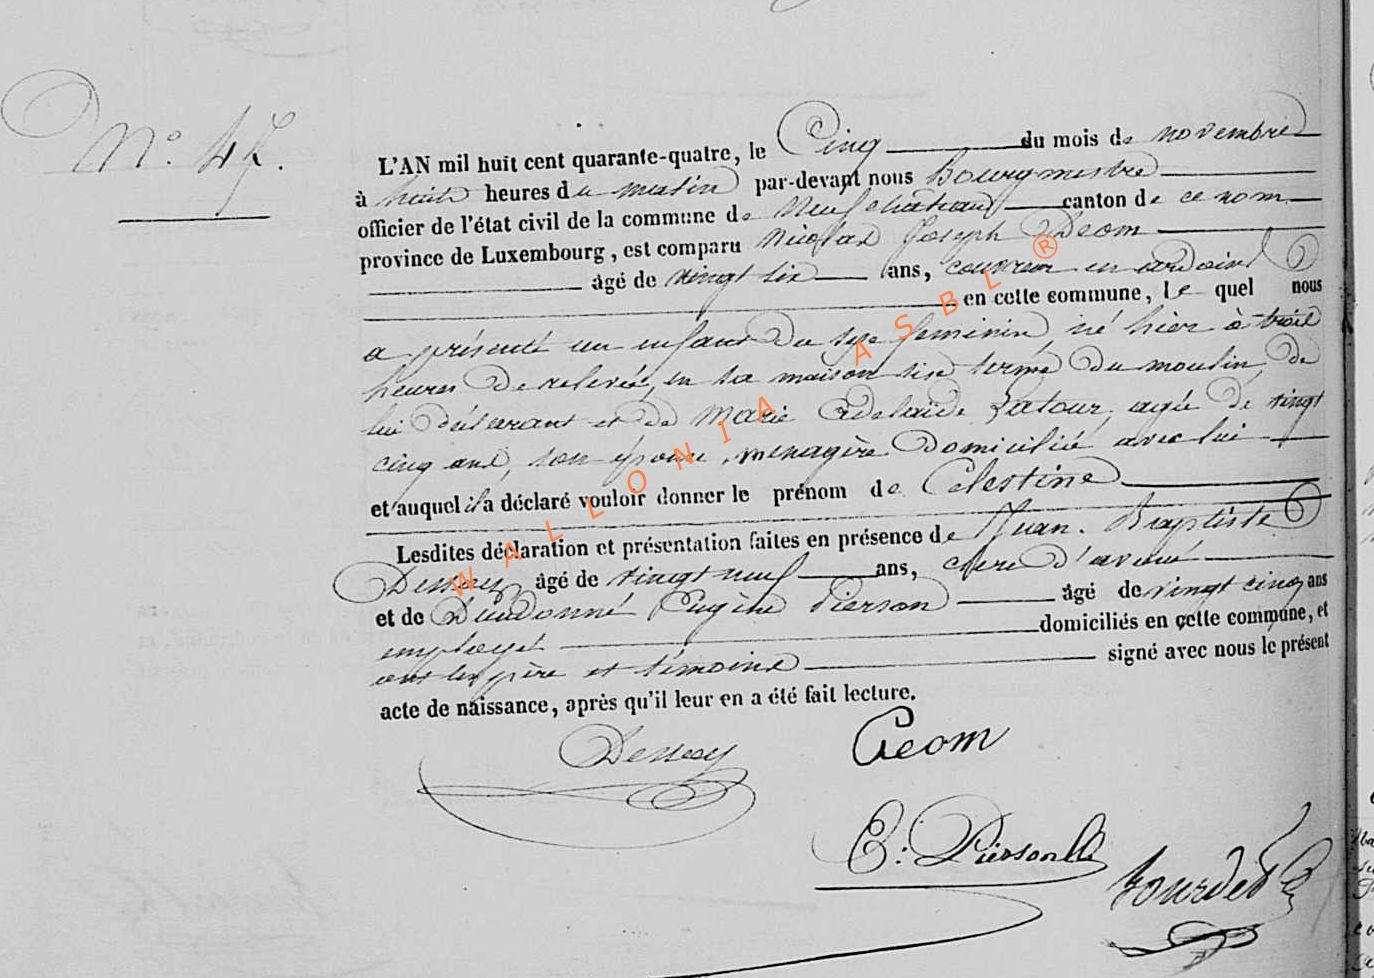 N° 47.
L'AN mil huit cent quarante-quatre, le Cinq du mois de novembre
à huit heures du matin par-devant nous Bourgmestre
officier de l'état civil de la commune de Neufchateau canton de ce nom
province de Luxembourg, est comparu Nicolas Joseph Deom
âgé de vingt six ans, couvreur en ardoises
en cette commune, le quel nous
a présenté un enfant du sexe feminin, né hier à trois
heures de relevée, en sa maison sise terme du moulin, de
lui déclarant et de Marie Adelaide Latour, agée de vingt
cinq ans, son épouse, menagère domiciliée avec lui
et auquel il a déclaré vouloir donner le prénom de Celestine
Lesdites déclaration et présentation faites en présence de Jean-Baptiste
Dessoy âgé de vingt neuf ans, clerc d'avoué
et de Dieudonné Eugène Pierson âgé de vingt cinq ans
employé domiciliés en cette commune, et
ont les père et témoins signé avec nous le présent
acte de naissance, après qu'il leur en a été fait lecture.
Dessoy
Deom
E. Pierson
Bourdet
WALLONIA ASBL ®